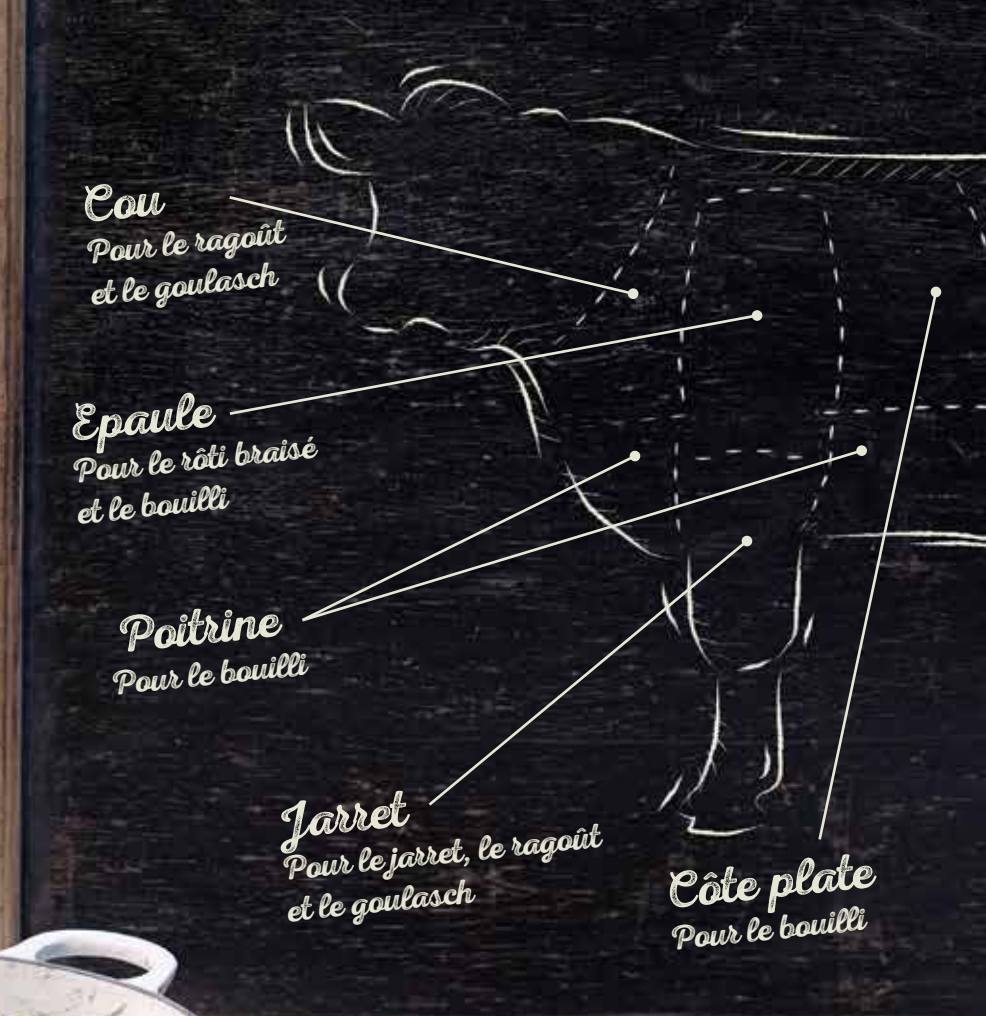 Cou
Pour le ragoût
et le goulasch
Epaule
Pour le rôti braisé
et le bouilli
Poitrine
Pour le bouilli
Jarret
Pour le jarret, le ragoût
et le goulasch
Côte plate
Pour le bouilli